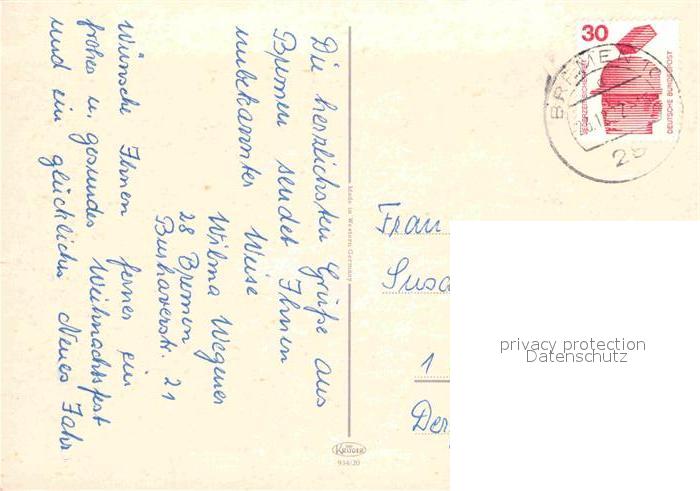 Die herzlichsten Grüße aus
Bremen sendet Ihnen
unbekannter Weise
Wilma Wegener
28 Bremen
Bushaverstr. 21
Wünsche Ihnen ferner ein
frohes u. gesundes Weihnachtsfest
und ein glückliches Neues Jahr
Made in Western Germany
KRÜGER
934/20
30
DEUTSCHE BUNDESPOST
BREMEN
28
Frau
Susa
1
Der
privacy protection
Datenschutz